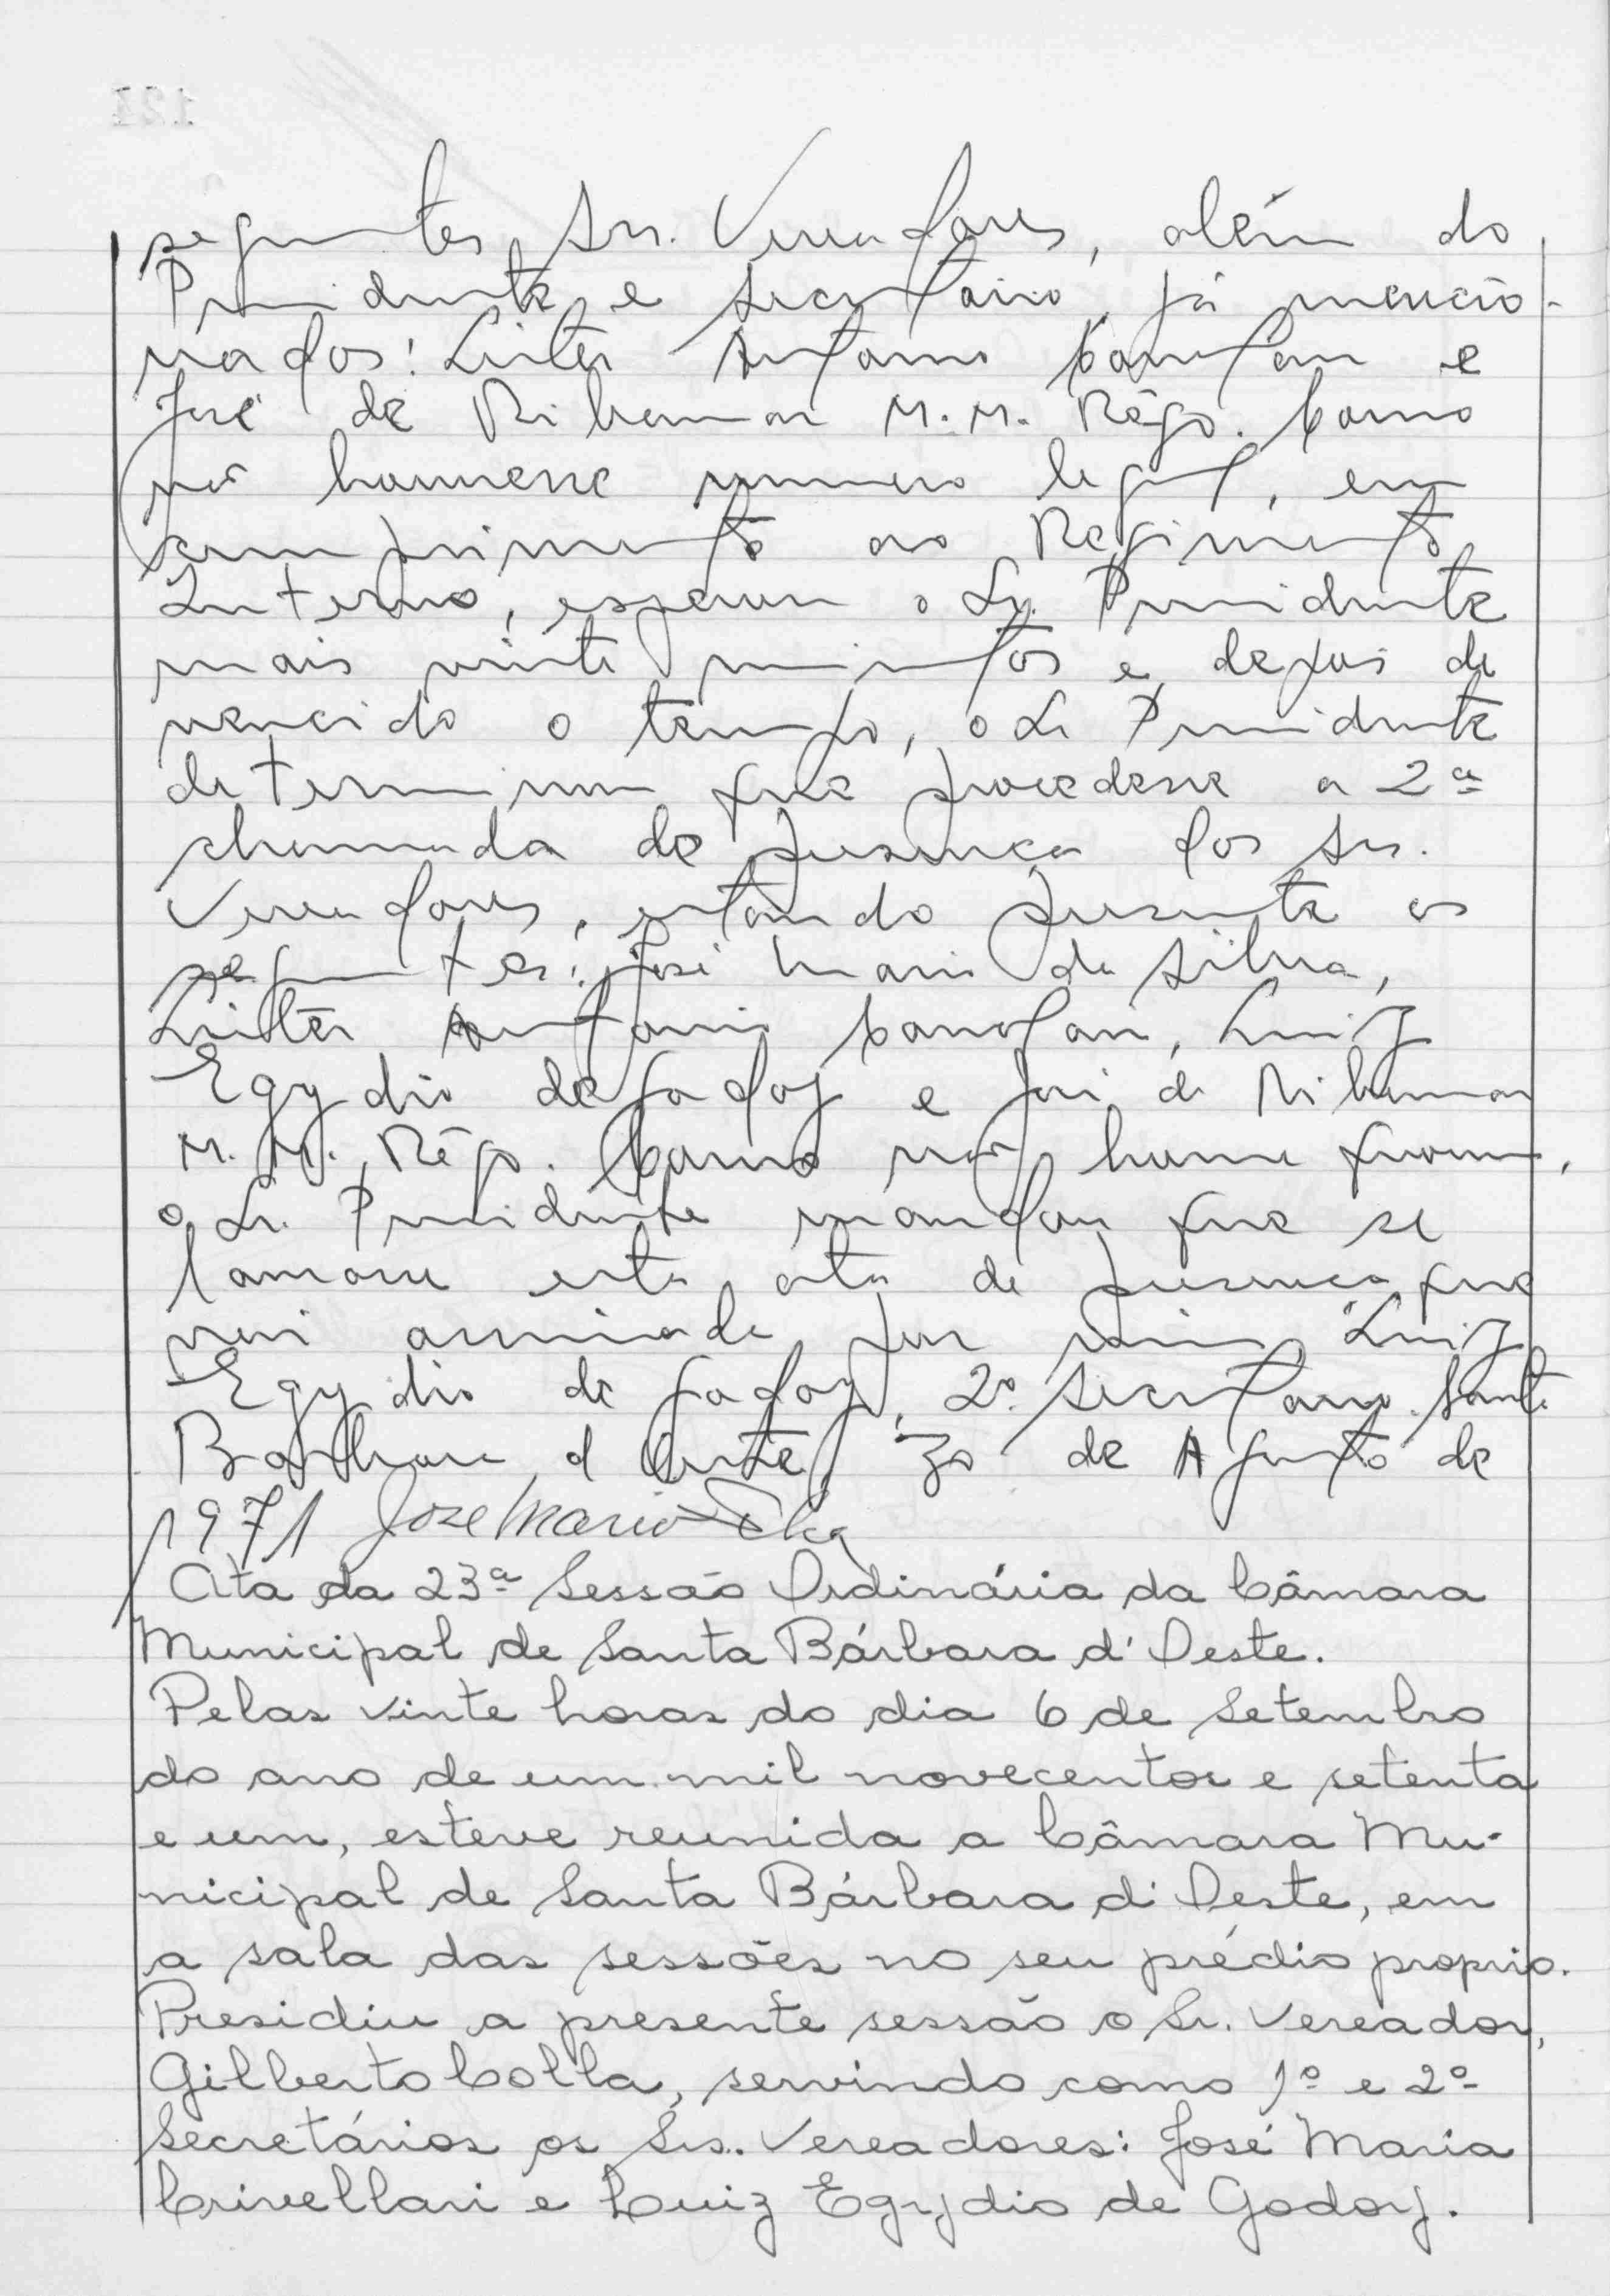 seguintes Srs. Vereadores, além do
Presidente e Secretario, já mencio-
nados: Linter Antonio e
José de Ribamar M. M. Rêgo. Como
não houvesse numero legal, em
cumprimento ao Regimento
Interno, esperou o Sr. Presidente
mais vinte minutos e depois de
vencido o tempo, o Sr Presidente
determinou que procedesse a 2ª
chamada de presença dos Srs.
Vereadores, estando presente os
seguintes: José Maria da Silva,
Antonio Luiz
Egydio de Godoy e José de Ribamar
M. M. Rêgo. Como não houve quorum,
o Sr. Presidente mandou que se
lavrasse esta ata de presença que
vai assinada por mim Luiz
Egydio de Godoy, 2º Secretario. Santa
Barbara d Oeste 30 de Agosto de
1971 José Maria Silva
Ata da 23ª Sessão Ordinária da Câmara
Municipal de Santa Bárbara d'Oeste.
Pelas vinte horas do dia 6 de Setembro
do ano de um mil novecentos e setenta
e um, esteve reunida a Câmara Mu-
nicipal de Santa Bárbara d'Oeste, em
a sala das sessões no seu prédio proprio.
Presidiu a presente sessão o Sr. Vereador,
Gilberto Colla, servindo como 1º e 2º
Secretários os Srs. Vereadores: José Maria
Crivellari e Luiz Egydio de Godoy.